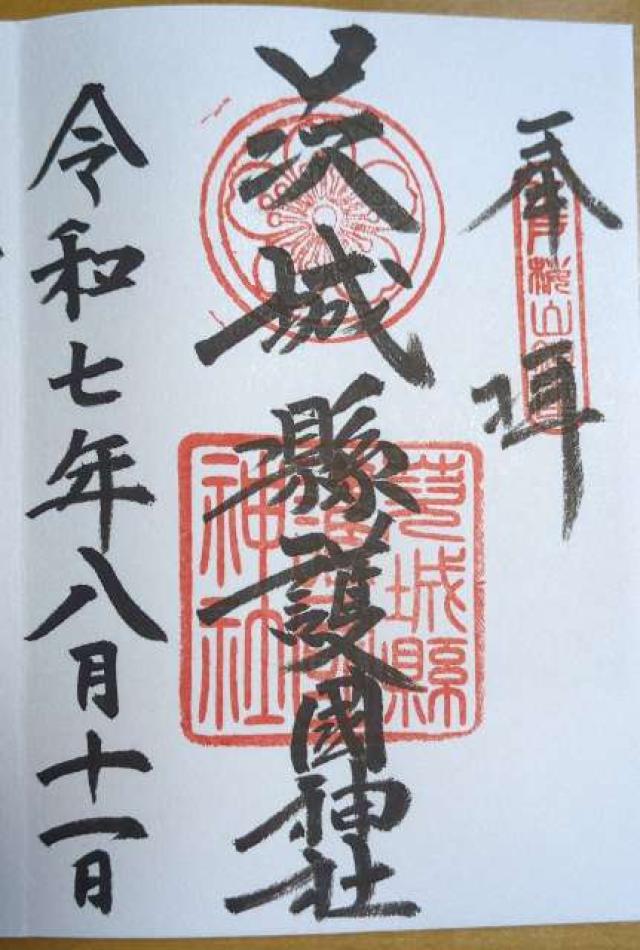 奉拝
茨城縣護國神社
茨城縣
護國
神社
令和七年八月十一日